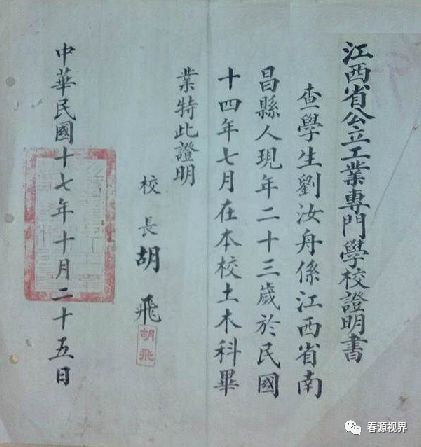 江西省公立工業專門學校證明書
查學生劉汝舟係江西省南
昌縣人現年二十三歲於民國
十四年七月在本校土木科畢
業特此證明
校長胡飛
胡飛
中華民國十七年十月二十五日
春源视界